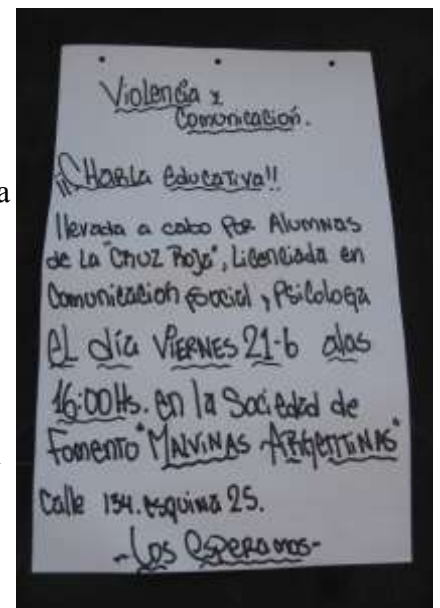 Violencia y
Comunicación.
¡¡CHARLA Educativa!!
llevada a cabo POR Alumnas
de La "Cruz Roja", Licenciada en
Comunicación social y Psicología
EL día VIERNES 21-6 alas
16:00Hs. en la Sociedad de
Fomento "MALVINAS ARGENTINAS"
Calle 134. esquina 25.
-Los esperamos-